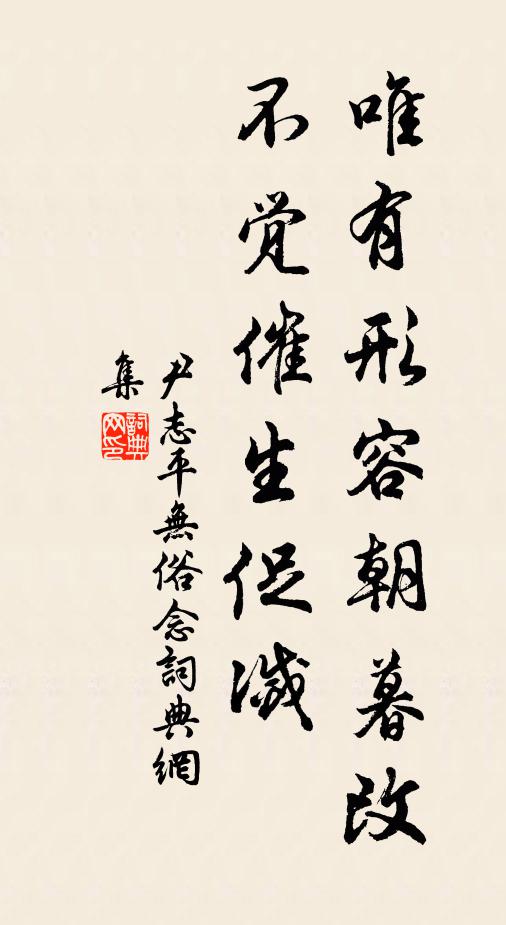 唯有形容朝暮改
不觉催生促滅
尹志平無俗念詞典網
集
詞典
网印